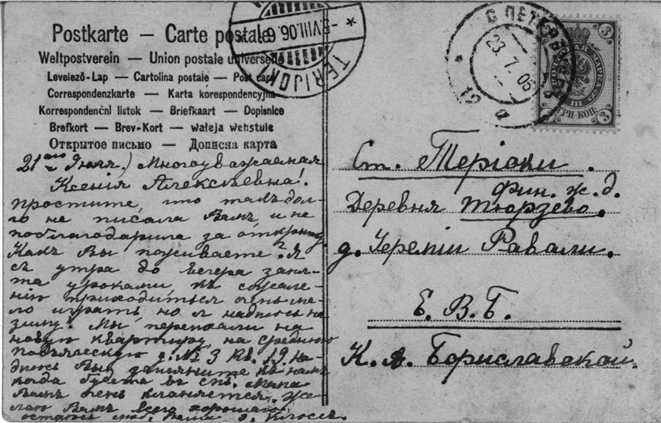 Postkarte — Carte postale
Weltpostverein — Union postale universelle
Levelező-Lap — Cartolina postale — Post card
Correspondenzkarte — Karta korespondencyjna
Korrespondenční listok — Briefkaart — Dopisnice
Brefkort — Brev-Kort — waleja wehstule
Открытое письмо — Дописна карта
TERIJOKI
*-5.VIII.06.9 *
С.ПЕТЕРБУРГ
23.7.06
3
ТРИ КОП.
3
21го Июля.) Многоуважаемая
Ксенія Алексѣевна!
простите, что такъ дол-
го не писала Вамъ и не
поблагодарила за открытку.
Какъ Вы поживаете? Я
съ утра до вечера заня-
та уроками къ сожале-
нию приходиться очень ма-
ло играть, но я надѣюсь на
зиму! Мы переехали на
новую квартиру, на среднюю
подъяческую д. № 3 кв. 19. На-
дѣюсь Вы загляните къ намъ
когда будете въ спб. Мама
Вамъ очень кланяется. Же-
лаю Вамъ всего хорошаго.
остаюсь Ваша
Ст. Теріоки.
фин. ж. д.
Деревня Тюрзево.
д. Іереміи Равали.
Е. В. Б.
К. А. Бориславской.